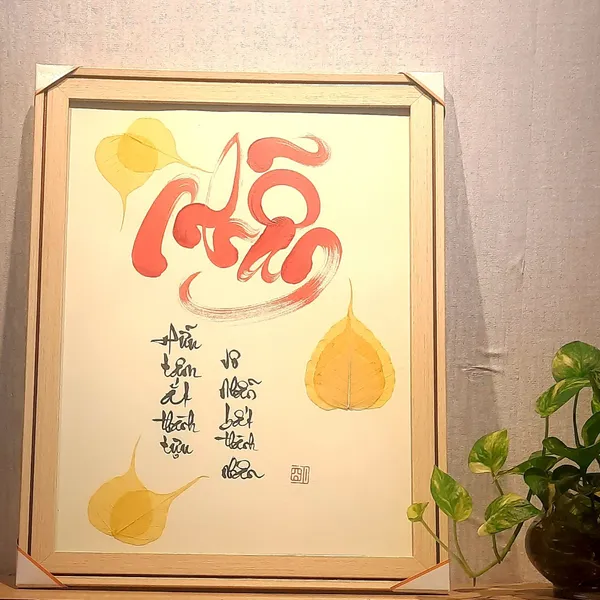 Nhẫn
Hữu
tâm
ắt
thành
tựu
Vô
Nhẫn
bất
thành
nhân